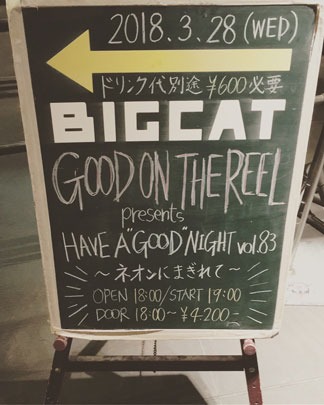 2018.3.28 (WED)
ドリンク代別途 ¥600必要
BIGCAT
GOOD ON THE REEL
presents
HAVE A "GOOD" NIGHT vol.83
～ネオンにまぎれて～
OPEN 18:00/START 19:00
DOOR 18:00～ ¥4.200-